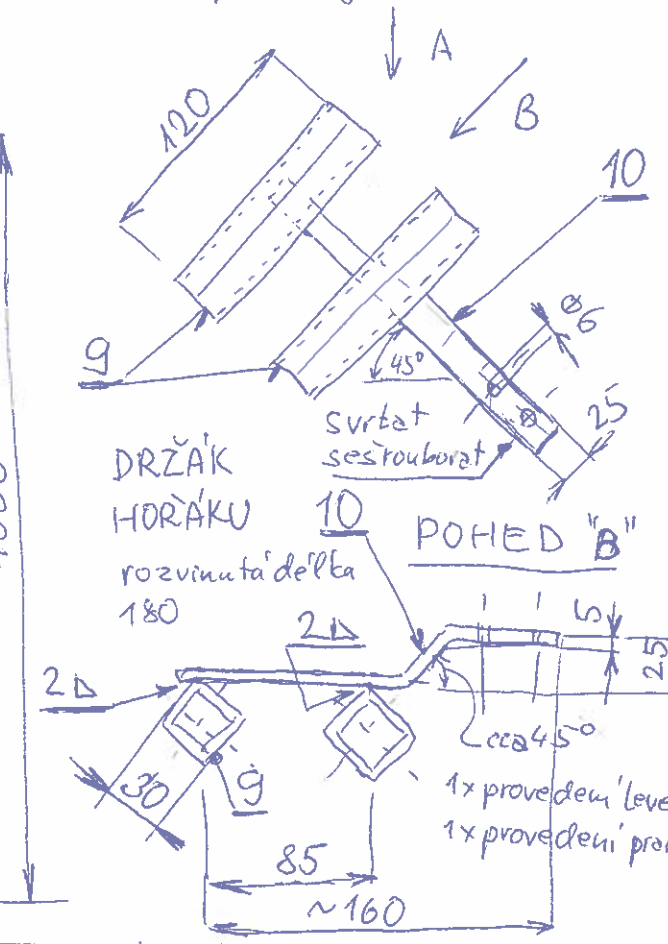 A
B
120
10
ø6
9
45°
25
svrtat
sešroubovat
DRŽÁK
HOŘÁKU
rozvinutá délka
180
10
POHED "B"
2
2
5
25
cca 45°
30
9
1x provedení leve
1x provedení prav
85
~160